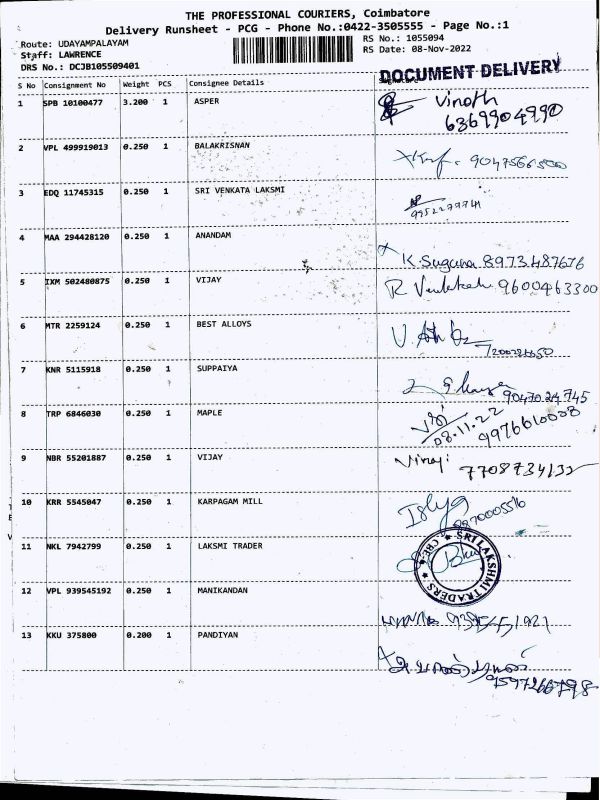 THE PROFESSIONAL COURIERS, Coimbatore
Delivery Runsheet - PCG - Phone No.:0422-3505555 - Page No.:1
Route: UDAYAMPALAYAM
RS No.: 1055094
Staff: LAWRENCE
RS Date: 08-Nov-2022
DRS No.: DCJB105509401
DOCUMENT DELIVERY
S No Consignment No Weight PCS Consignee Details
1 SPB 10100477 3.200 1 ASPER Vinoth
6369904990
2 VPL 499919013 0.250 1 BALAKRISNAN
3 EDQ 11745315 0.250 1 SRI VENKATA LAKSMI
4 MAA 294428120 0.250 1 ANANDAM
K.Suguna 8973487676
5 IXM 502480875 0.250 1 VIJAY R 9600463300
6 MTR 2259124 0.250 1 BEST ALLOYS
7 KNR 5115918 0.250 1 SUPPAIYA
9047024745
8 TRP 6846030 0.250 1 MAPLE
08.11.22 9976610008
9 NBR 55201887 0.250 1 VIJAY
10 KRR 5545047 0.250 1 KARPAGAM MILL
11 NKL 7942799 0.250 1 LAKSMI TRADER
SRI LAKSHMI TRADERS CBE
12 VPL 939545192 0.250 1 MANIKANDAN
13 KKU 375800 0.200 1 PANDIYAN
9597266798